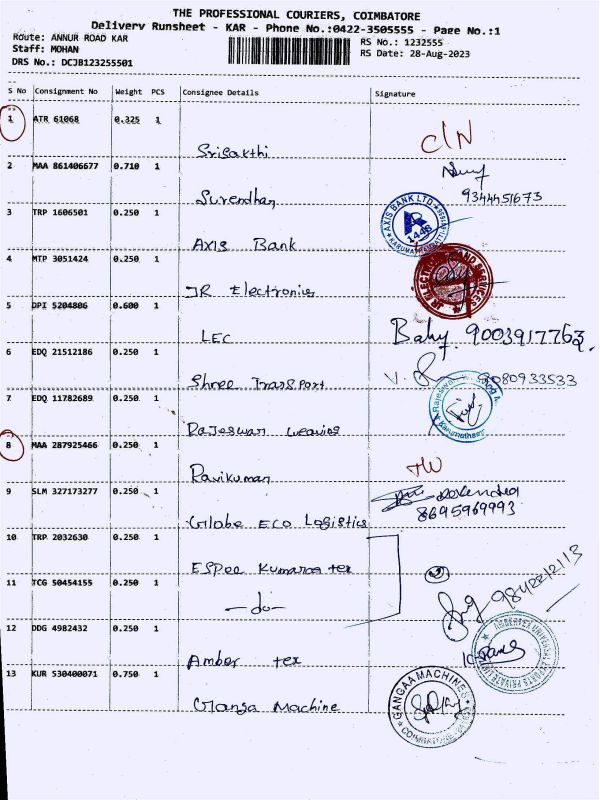 THE PROFESSIONAL COURIERS, COIMBATORE
Delivery Runsheet - KAR - Phone No.:0422-3505555 - Page No.:1
Route: ANNUR ROAD KAR RS No.: 1232555
Staff: MOHAN RS Date: 28-Aug-2023
DRS No.: DCJB123255501
S No Consignment No Weight PCS Consignee Details Signature
1 ATR 61068 0.325 1
Srisakthi C/N
2 MAA 861406677 0.710 1
Surendhan 9344451673
3 TRP 1606501 0.250 1
Axis Bank AXIS BANK LTD 1448
4 MTP 3051424 0.250 1
JR Electronics
5 DPI 5204806 0.600 1
LEC Baby. 9003917763.
6 EDQ 21512186 0.250 1
Shree Transport 9080933533
7 EDQ 11782689 0.250 1
Rajeswari weaving
8 MAA 287925466 0.250 1
Ravikumar
9 SLM 327173277 0.250 1
Globe ECO Logistics 8695969993
10 TRP 2032630 0.250 1
ESPee Kumaraa tex
11 TCG 50454155 0.250 1
-do-
12 DDG 4982432 0.250 1
Amber tex
13 KUR 530400071 0.750 1
Ganga Machine GANGAA MACHINES